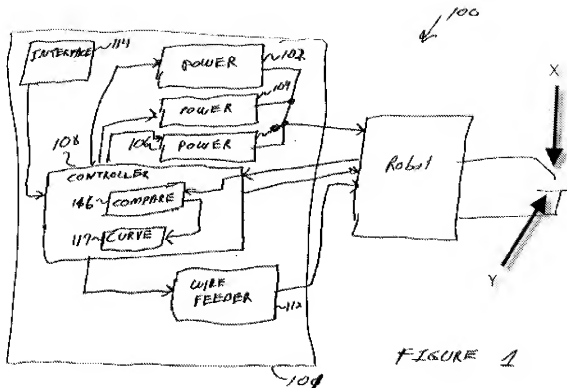 100
INTERFACE 114
POWER 102
POWER 104
106 POWER
108
CONTROLLER
146 COMPARE
117 CURVE
WIRE FEEDER 112
Robot
X
Y
FIGURE 1